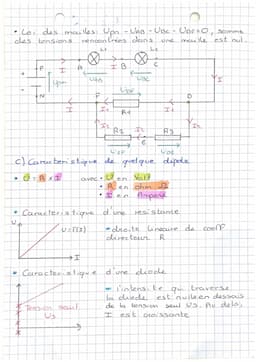 • Loi des mailles: UPN - UAB - UBC - UDF = 0, somme
des tensions rencontrées dans une maille est nul.
L1 L2
P I A I B I C
UPN UAB UBC I
N F D
I I1 R1 I1
UDF
I2 R2 I2 E R3 I2
UEF UDE
C) Caractéristique de quelque dipole
• U = R x I avec • U en Volt
• R en ohm Ω
• I en Ampère
• Caractéristique d'une résistance
U
U = f(I) • droite linéaire de coeff
directeur R
I
• Caractéristique d'une diode
I
- l'intensité qui traverse
la diode est nulle en dessous
Tension seuil de la tension seuil US. Au delà,
US I est croissante